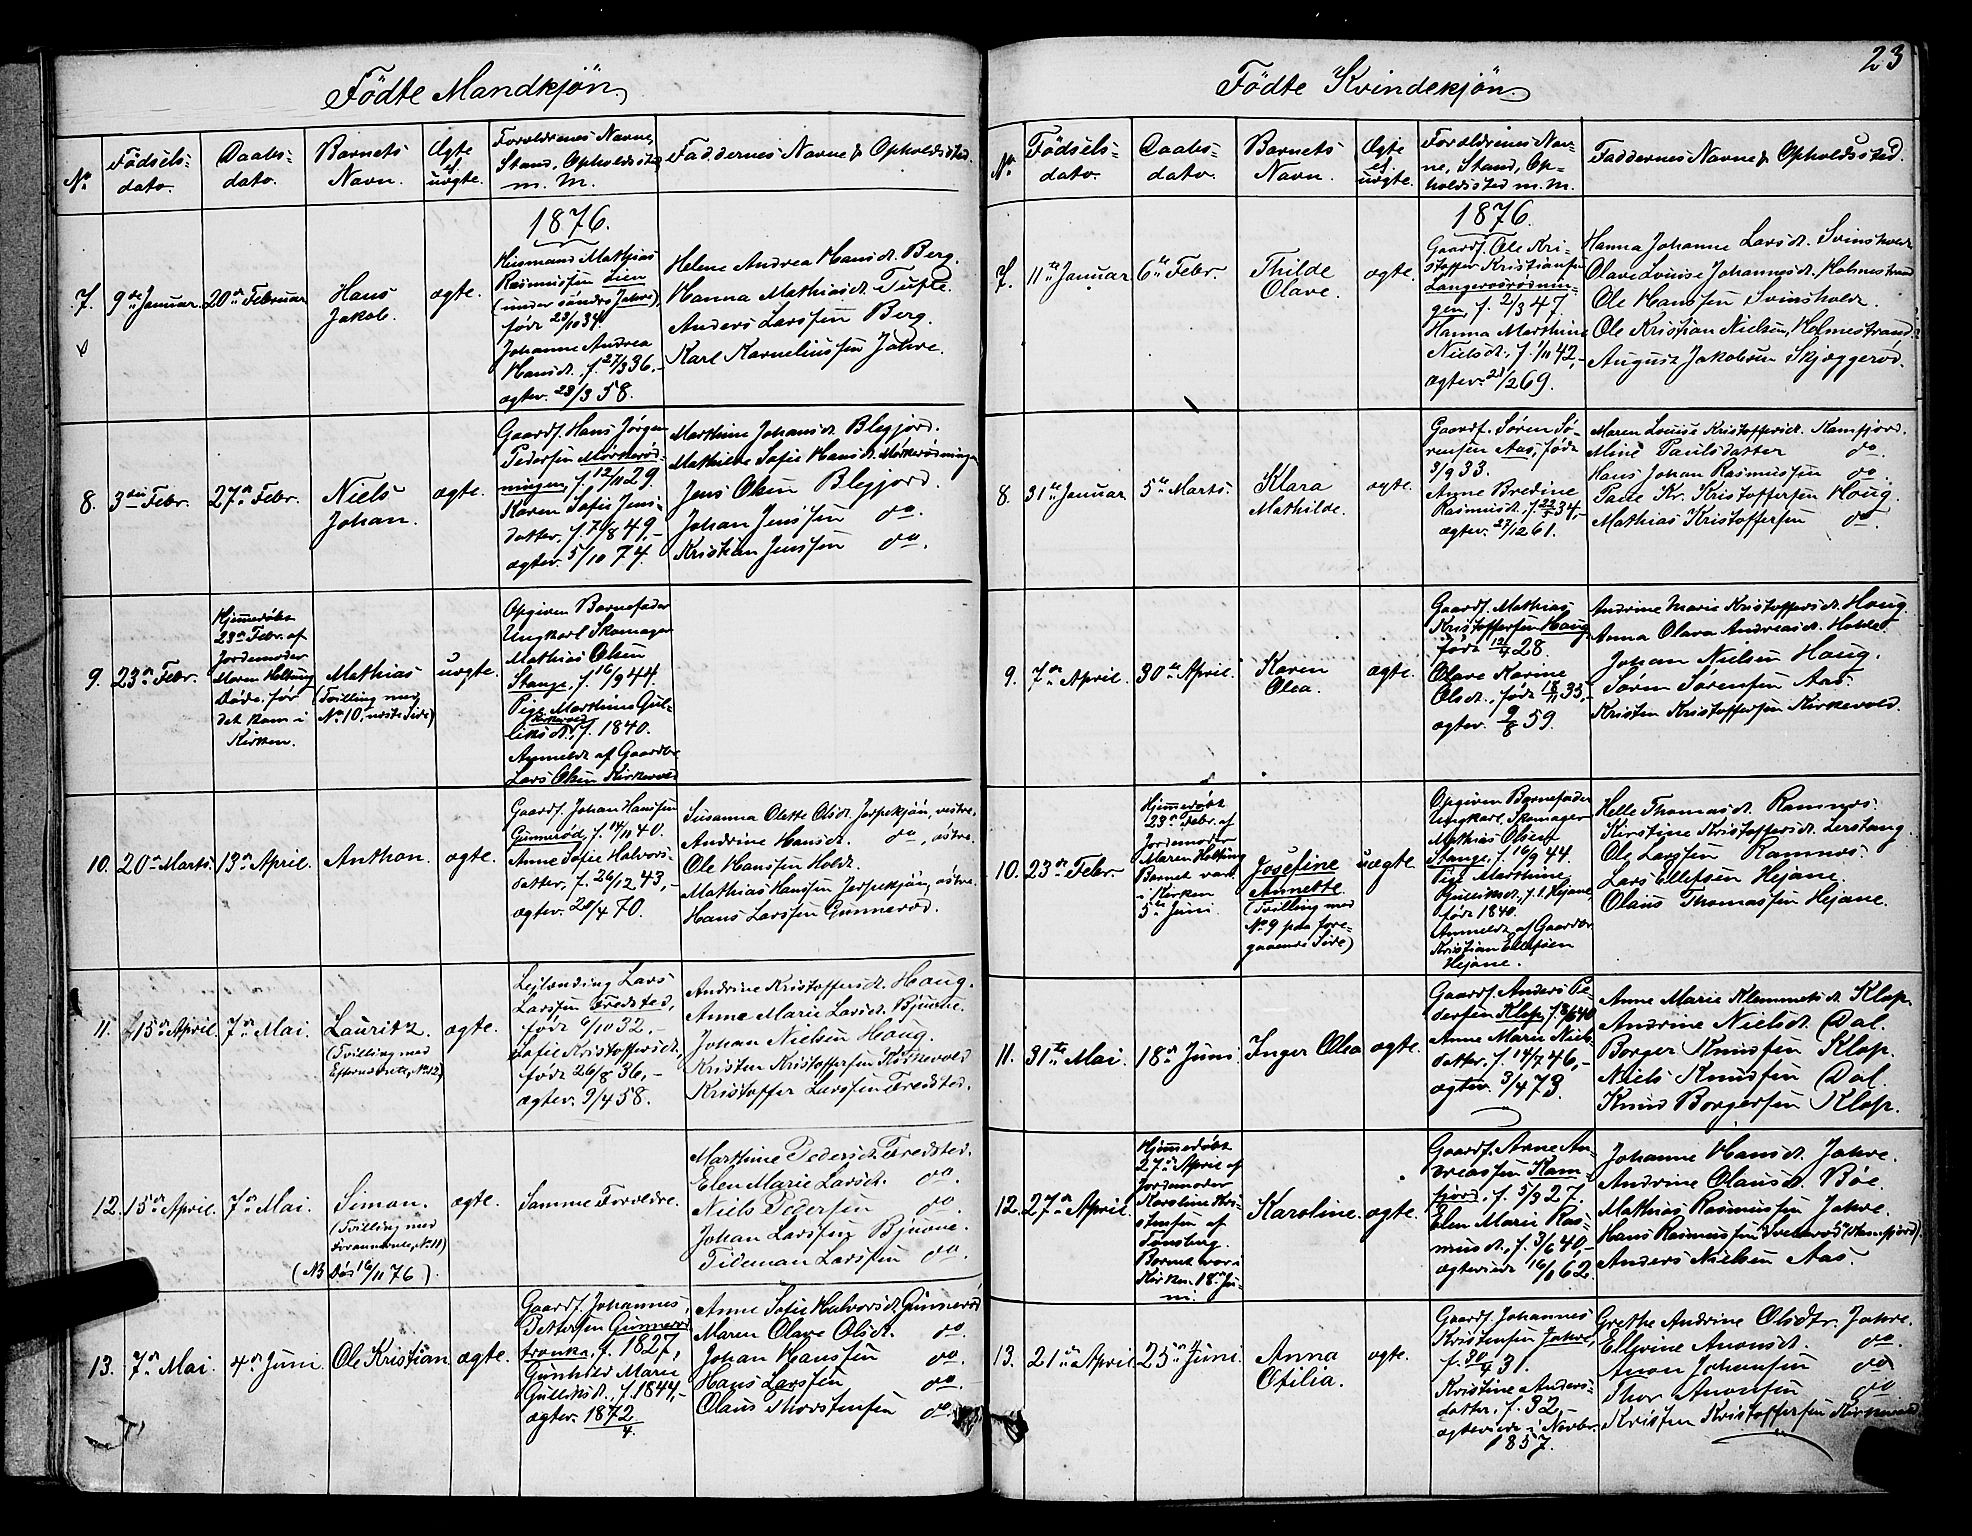 23
Fødte Mandkjøn
No
Fødsels-
dato.
Daabs-
dato.
Barnets
Navn.
Ægte
el.
uægte.
Forældrenes Navne,
Stand, Opholdssted
m. M.
Faddernes Navne & Opholdssted.
1876.
7.
9de Januar.
20de Februar
Hans
Jakob.
ægte.
Husmand Mathias
Rasmussen Lien
(under søndre Jahre)
født 23/10 34.
Johanne Andrea
Hansdt. f. 27/3 36,-
ægtev. 28/3 58.
Helene Andrea Hansdt. Berg.
Hanna Mathiasdt. Tufte.
Anders Larssen Berg.
Karl Korneliussen Jahre.
8.
3die Febr.
27de Febr.
Niels
Johan.
ægte.
Gaardf. Hans Jørgen
Pedersen Mørkerød-
ningen, f. 12/11 29.
Karen Sofie Jens-
datter, f. 7/8 49,-
ægtev. 5/10 74.
Marthine Johansdt. Blegjord.
Mathilde Sofie Hansdt. Mørkerødningen
Jens Olsen Blegjord.
Johan Jenssen do.
Kristian Jenssen do.
9.
23de Febr.
Hjemmedøbt
23de Febr. af
Jordemoder
Maren Holtung
Døde før
det kom i
Kirken.
Mathias
(Tvilling med
No 10, næste Side)
uægte.
Opgiven Barnefader
Ungkarl Skomager
Mathias Olsen
Stange, f. 16/9 44.
Pige Marthine Gul-
Kirkevold
liksdt., f. 1840.
Anmeldt af Gaardbr.
Lars Olsen Kirkevold
10.
20de Marts
13de April.
Anthon.
ægte.
Gaardf. Johan Hanssen
Gunnerød, f. 14/11 40.
Anne Sofie Halvors-
datter, f. 26/12 43,-
ægtev. 20/4 70.
Susanna Olette Olsdt. Jerpekjøn, vestre.
Andrine Hansdt. do, østre.
Ole Hanssen Holdt.
Mathias Hanssen Jerpekjøn, østre.
Hans Larssen Gunnerød.
11.
15de April.
7de Mai.
Lauritz.
(Tvilling med
Efternævnte, No 12)
ægte.
Lejlænding Lars
Larssen Fredsted,
født 6/10 32,-
Sofie Kristoffersdt.,
født 26/8 36,-
ægtev. 9/4 58.
Andrine Kristoffersdt. Haug.
Anne Marie Larsdt. Bjuone.
Johan Nielsen Haug.
Kristen Kristoffersen Kirkevold
Kristoffer Larssen Fredsted.
12.
15de April.
7de Mai.
Simon.
(Tvilling med
Forannævnte, No 11)
(NB Død 16/11 76).
ægte.
Samme Forældre.
Marthine Pedersdt. Fredsted.
Elen Marie Larsdt. do.
Niels Pedersen do.
Johan Larssen Bjuone.
Tideman Larssen do.
13.
7de Mai.
4de Juni.
Ole Kristian
ægte.
Gaardf. Johannes
Pettersen Gunnerød
tronka, f. 1827,
Gunhild Marie
Gulliksdt., f. 1844,-
ægtev. 1872/4.
Anne Sofie Halvorsdt. Gunnerød
Maren Olave Olsdt. do.
Johan Hanssen do.
Hans Larssen do.
Olaus Thorstensen do.
Fødte Kvindekjøn
No
Fødsels-
dato.
Daabs-
dato.
Barnets
Navn.
Ægte
el.
uægte.
Forældrenes Nav-
ne, Stand, Op-
holdssted m. m.
Faddernes Navne & Opholdssted.
1876.
7.
11te Januar
6te Febr.
Thilde
Olave.
ægte.
Gaardf. Ole Kri-
stoffer Kristiansen
Langerødrødnin-
gen, f. 2/3 47.
Hanna Marthine
Nielsdt., f. 1/11 42,-
ægtev. 21/12 69.
Hanna Johanne Larsdt. Svinsholt
Olave Lovise Johannesdt. Holmestrand
Ole Hanssen Svinsholt.
Ole Kristian Nielsen, Holmestrand.
August Jakobsen Skjæggerød.
8.
31te Januar
5te Marts.
Klara
Mathilde.
ægte.
Gaardf. Søren Sø-
rensen Aas, født
3/9 33.
Anne Bredine
Rasmusdt. f. 22/5 34,-
ægtev. 27/12 61.
Maren Lovise Kristoffersdt. Kamfjord.
Mine Paulsdatter do.
Hans Johan Rasmussen do.
Paul Kr. Kristoffersen Haug.
Mathias Kristoffersen do.
9.
7de April.
30te April.
Karen
Olea.
ægte.
Gaardf. Mathias
Kristoffersen Haug,
født 12/4 28.
Olave Karine
Olsdt., født 18/11 35,-
ægtev. 9/8 59.
Andrine Marie Kristoffersdt. Haug.
Anna Olava Andreasdt. Holdt.
Johan Nielsen Haug.
Søren Sørensen Aas.
Kristen Kristoffersen Kirkevold.
10.
23de Febr.
Hjemmedøbt
23de Febr. af
Jordemoder
Maren Holtung
Barnet var
i Kirken
5te Juni.
Josefine
Annette.
(Tvilling med
No 9 paa fore-
gaaende Side)
uægte.
Opgiven Barnefader
Ungkarl, Skomager
Mathias Olsen
Stange, f. 16/9 44.
Pige Marthine
Gulliksdt., f. i Hejane,
født 1840.
Anmeldt af Gaardbr.
Kristian Ellefsen
Hejane.
Helle Thomasdt. Ramnes.
Kirstine Kristoffersdt. Lerstang.
Ole Larssen Ramnes.
Lars Ellefsen Hejane.
Olaus Thomassen Hejane.
11.
31te Mai.
18de Juni
Inger Olea
ægte.
Gaardf. Anders Pe-
dersen Klop, f. 8/6 40
Anne Marie Niels-
datter, f. 14/7 46,-
ægtev. 3/4 73.
Anne Marie Klemmetsdt. Klop.
Andrine Nielsdt. Dal.
Borger Knudsen Klop.
Niels Knudsen Dal.
Knud Borgersen Klop.
12.
27de April
Hjemmedøbt
27de April af
Jordemoder
Karoline Kri-
stensen af
Tønsberg.
Barnet var i
Kirken 18de Ju-
ni.
Karoline.
ægte.
Gaardf. Arne An-
dreassen Kam-
fjord, f. 5/3 27.
Elen Marie Ras-
musdt., f. 3/6 40,-
ægteviede 16/11 62.
Johanne Hansdt. Jahre.
Andrine Olausdt. Bøe.
Mathias Rasmussen Jahre.
Hans Rasmussen Sveterød (Kamfjord).
Anders Nielsen Aas.
13.
21de April
25de Juni.
Anna
Otilia.
ægte.
Gaardf. Johannes
Kristensen Jahre,
f. 30/4 31.
Kristine Anders-
datter, f. 32,-
ægteviede i Novbr.
1857.
Grethe Andrine Olsdtr. Jahre.
Elevine Anonsdt. do.
Anon Johansen do
Thor Anonsen do
Kristen Kristoffersen Kirkevold